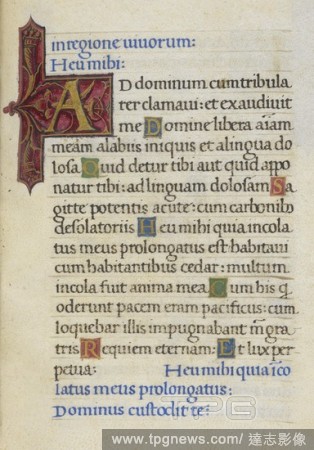 in regione vivorum:
Heu mihi:
AD dominum cum tribula
rer clamavi: et exaudivit
me Domine libera aīam
meam a labiis iniquis et a lingua do
losa Quid detur tibi aut quid appo
natur tibi: ad linguam dolosam Sa
gitte potentis acute: cum carbonib₉
desolatoriis Heu mihi quia incola
tus meus prolongatus est habitavi
cum habitantibus cedar: multum
incola fuit anima mea Cum his q̄
oderunt pacem eram pacificus: cum
loquebar illis impugnabant m̄ gra
tis Requiem eternam: Et lux per
petua: Heu mihi quia ico
latus meus prolongatus:
Dominus custodit te:
TPG
www.tpgnews.com | 達志影像